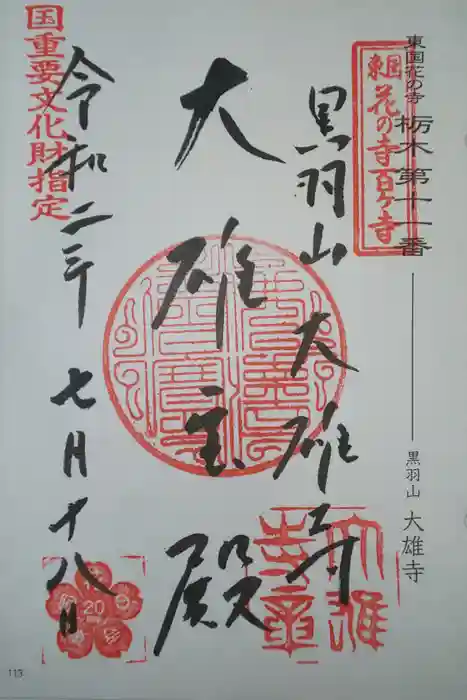 東国花の寺 栃木第十一番
黒羽山 大雄寺
東国
花の寺百ヶ寺
黒羽山 大雄寺
大雄宝殿
令和二年 七月十八日
国重要文化財指定
20
113